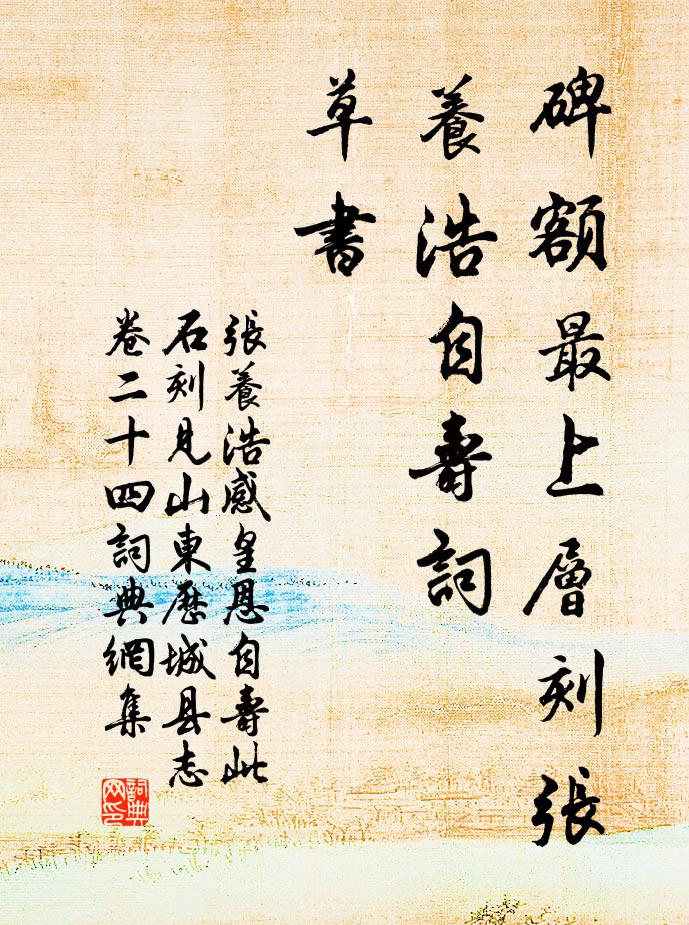 碑額最上層刻張
養浩自壽詞
草書
張養浩感皇恩自壽此
石刻見山東歷城县志
卷二十四詞典網集
詞典
网印